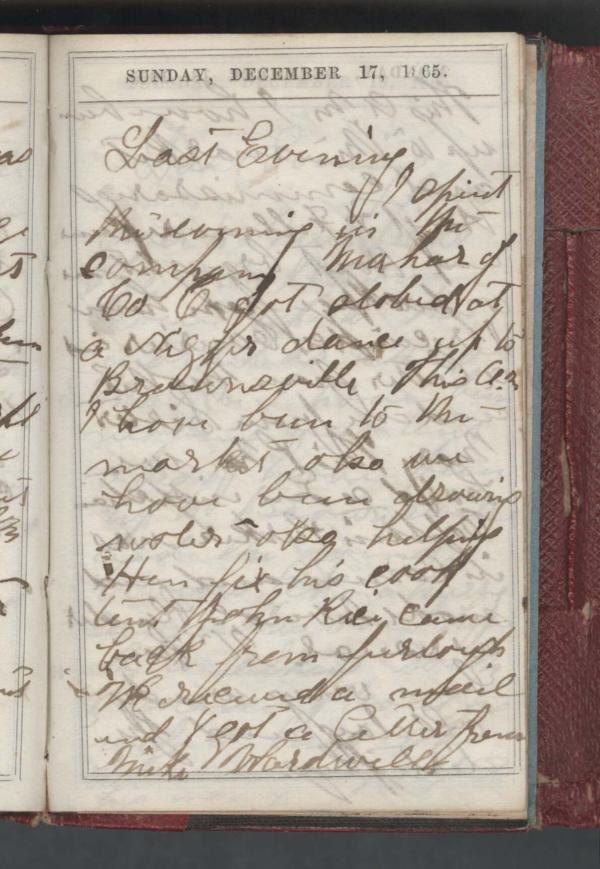 SUNDAY, DECEMBER 17, 1865.
Last Evening
I spent
the evening in the
company Mahar of
Co C got stobed at
a Nigger dance up to
Brownsville This A.M
I have been to the
market also we
have been drawing
water also helping
Hen fix his cook
tent John Rice came
back from furlough
We received a mail
and I got a letter from
Mike Wardwell